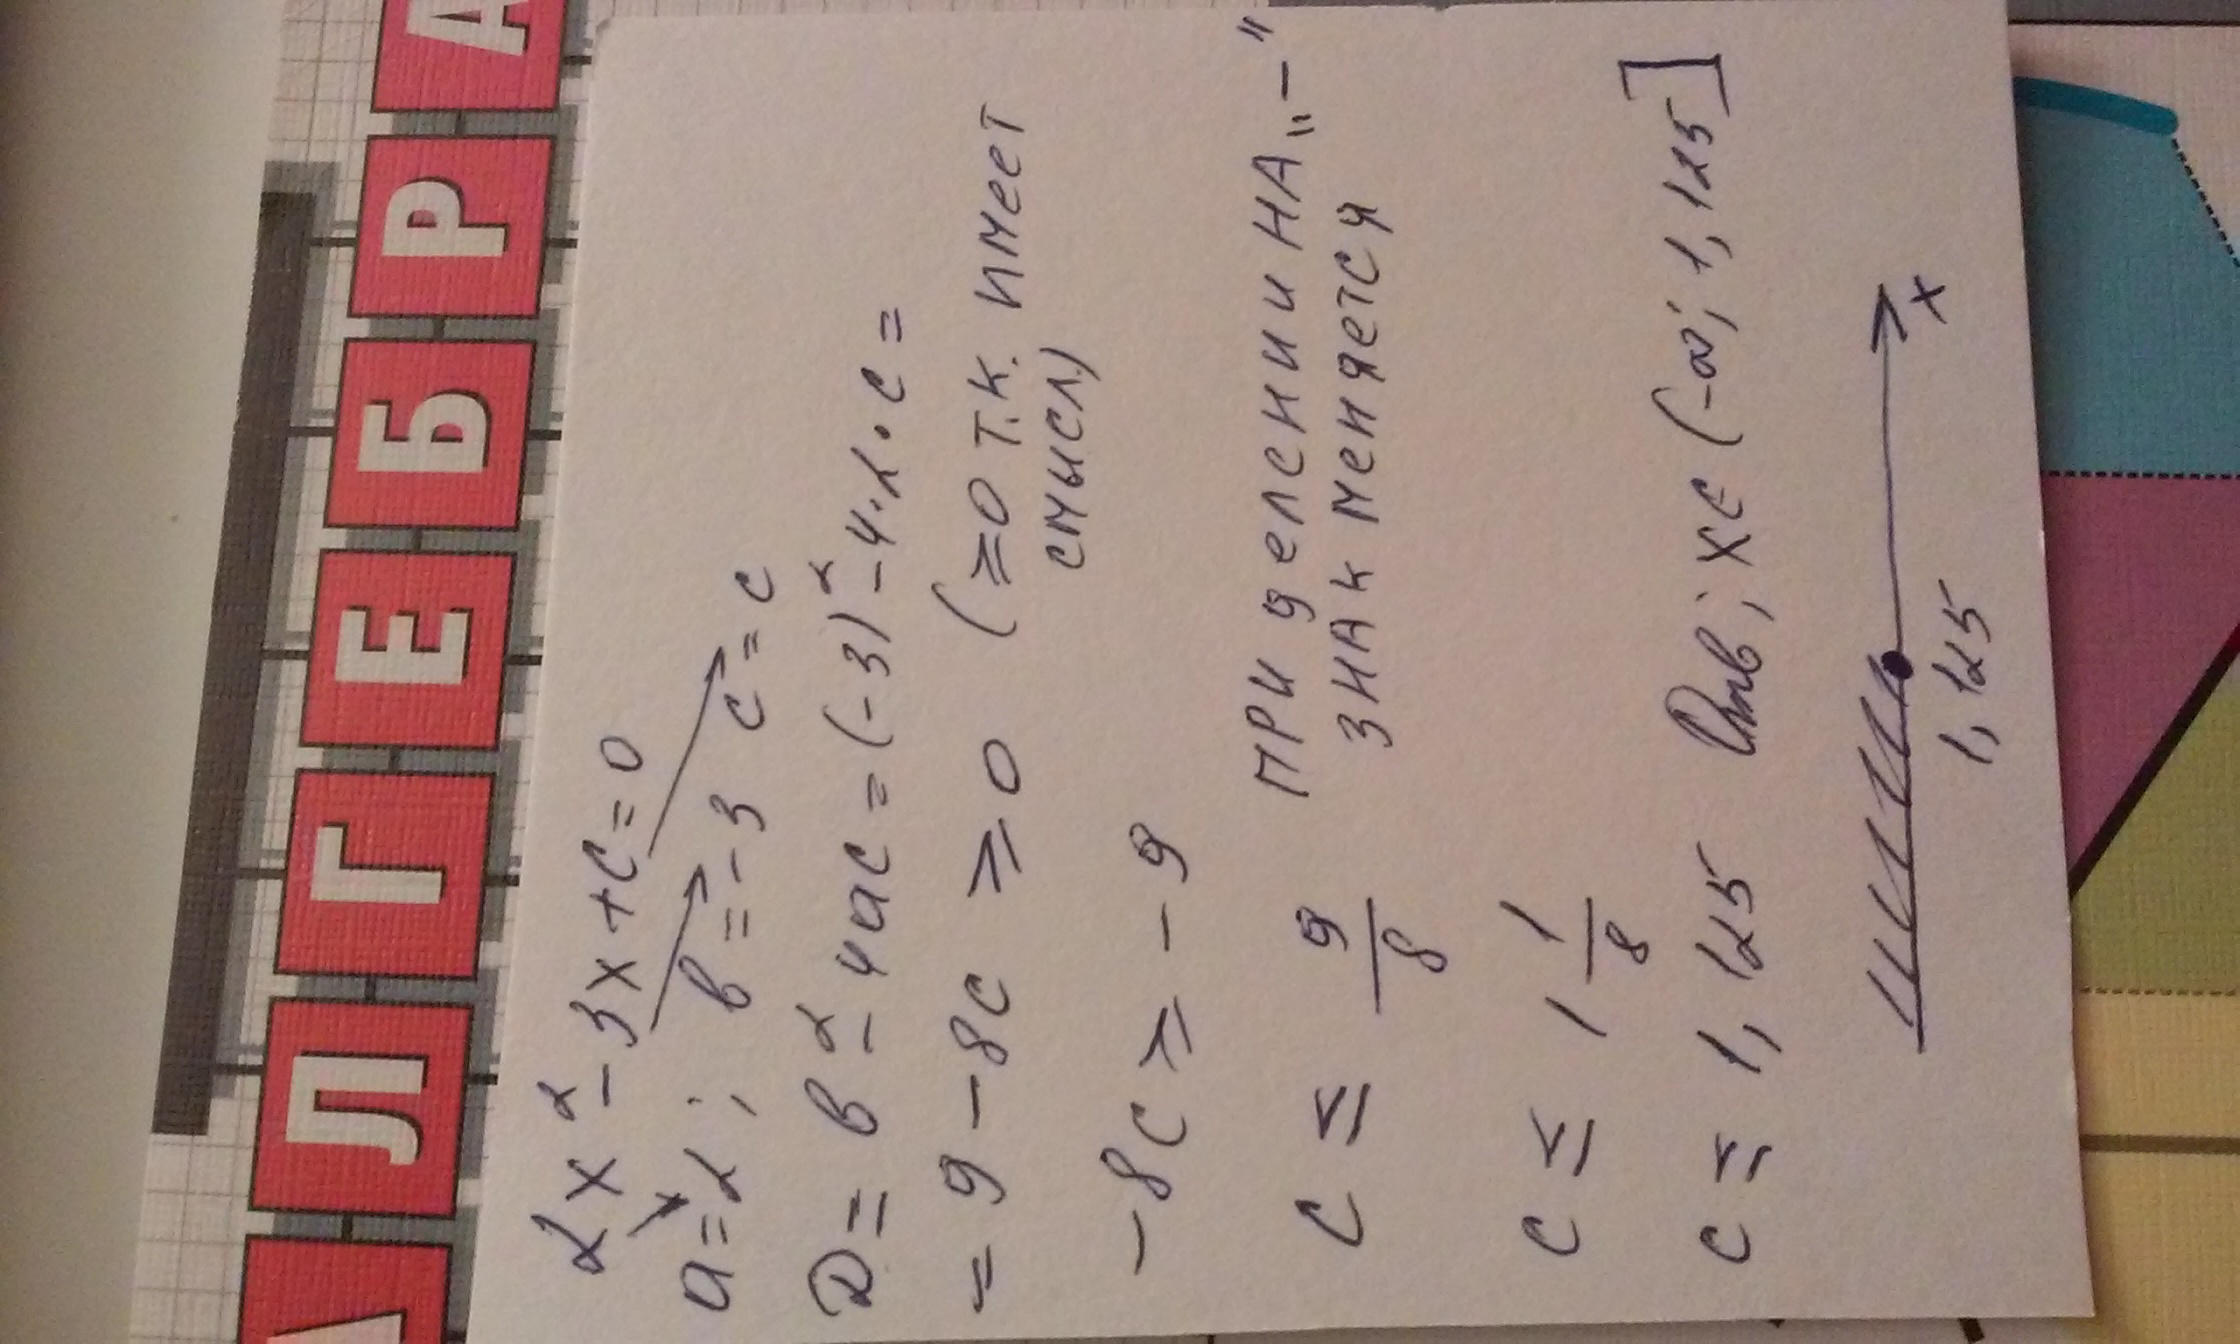 АЛГЕБРА
2x² - 3x + c = 0
a = 2; b = -3 c = c
D = b² - 4ac = (-3)² - 4·2·c =
= 9 - 8c ⩾ 0 (⩾0 т.к. имеет
смысл)
-8c ⩾ -9
c ≤ 9/8 при делении на „-"
знак меняется
c ≤ 1 1/8
c ≤ 1,125 Отв; x∈(-∞; 1,125]
1,125 x